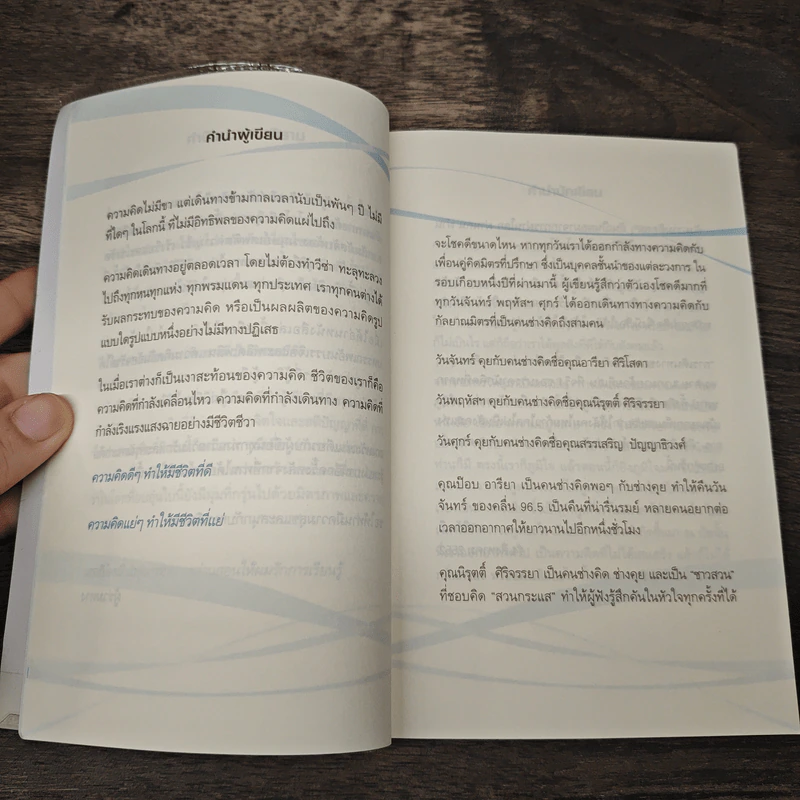 คำนำผู้เขียน
ความคิดไม่มีขา แต่เดินทางข้ามกาลเวลานับเป็นพันๆ ปี ไม่มี
ที่ใดๆ ในโลกนี้ ที่ไม่มีอิทธิพลของความคิดแผ่ไปถึง
ความคิดเดินทางอยู่ตลอดเวลา โดยไม่ต้องทำวีซ่า ทะลุทะลวง
ไปถึงทุกหนทุกแห่ง ทุกพรมแดน ทุกประเทศ เราทุกคนต่างได้
รับผลกระทบของความคิด หรือเป็นผลผลิตของความคิดรูป
แบบใดรูปแบบหนึ่งอย่างไม่มีทางปฏิเสธ
ในเมื่อเราต่างก็เป็นเงาสะท้อนของความคิด ชีวิตของเราก็คือ
ความคิดที่กำลังเคลื่อนไหว ความคิดที่กำลังเดินทาง ความคิดที่
กำลังเริงแรงแสงฉายอย่างมีชีวิตชีวา
ความคิดดีๆ ทำให้มีชีวิตที่ดี
ความคิดแย่ๆ ทำให้มีชีวิตที่แย่
จะโชคดีขนาดไหน หากทุกวันเราได้ออกกำลังทางความคิดกับ
เพื่อนคู่คิดมิตรที่ปรึกษา ซึ่งเป็นบุคคลชั้นนำของแต่ละวงการ ใน
รอบเกือบหนึ่งปีที่ผ่านมานี้ ผู้เขียนรู้สึกว่าตัวเองโชคดีมากที่
ทุกวันจันทร์ พฤหัสฯ ศุกร์ ได้ออกเดินทางทางความคิดกับ
กัลยาณมิตรที่เป็นคนช่างคิดถึงสามคน
วันจันทร์ คุยกับคนช่างคิดชื่อคุณอารียา ศิริโสดา
วันพฤหัสฯ คุยกับคนช่างคิดชื่อคุณนิรุตติ์ ศิริจรรยา
วันศุกร์ คุยกับคนช่างคิดชื่อคุณสรรเสริญ ปัญญาธิวงศ์
คุณป๊อบ อารียา เป็นคนช่างคิดพอๆ กับช่างคุย ทำให้คืนวัน
จันทร์ ของคลื่น 96.5 เป็นคืนที่น่ารื่นรมย์ หลายคนอยากต่อ
เวลาออกอากาศให้ยาวนานไปอีกหนึ่งชั่วโมง
คุณนิรุตติ์ ศิริจรรยา เป็นคนช่างคิด ช่างคุย และเป็น "ชาวสวน"
ที่ชอบคิด "สวนกระแส" ทำให้ผู้ฟังรู้สึกคันในหัวใจทุกครั้งที่ได้